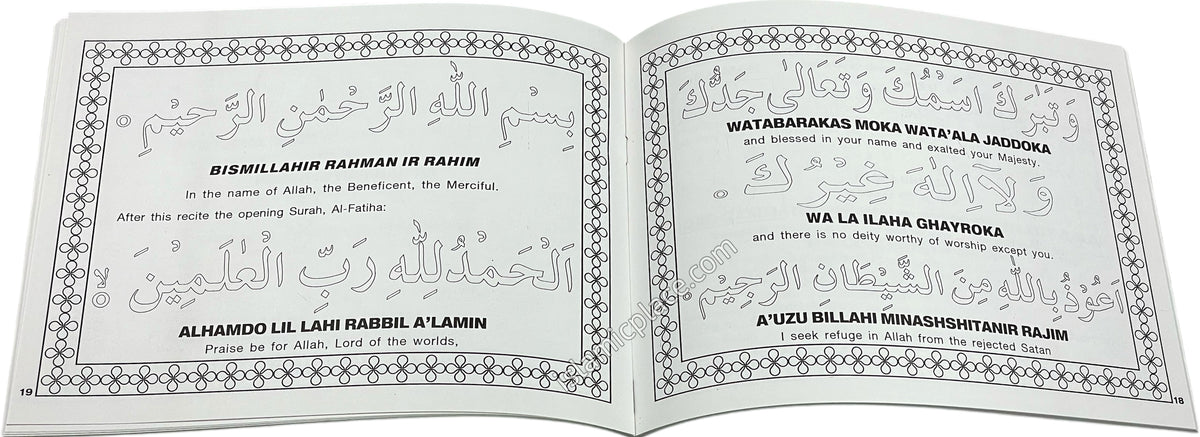 وَتَبَرَكَ اسْمُكَ وَتَعَالٰى جَدُّكَ
WATABARAKAS MOKA WATA'ALA JADDOKA
and blessed in your name and exalted your Majesty.
وَلَآاِلٰهَ غَيْرُكَ
WA LA ILAHA GHAYROKA
and there is no deity worthy of worship except you.
اَعُوْذُ بِاللّٰهِ مِنَ الشَّيْطَانِ الرَّجِيْمِ
A'UZU BILLAHI MINASHSHITANIR RAJIM
I seek refuge in Allah from the rejected Satan
18
بِسْمِ اللّٰهِ الرَّحْمٰنِ الرَّحِيْمِ
BISMILLAHIR RAHMAN IR RAHIM
In the name of Allah, the Beneficent, the Merciful.
After this recite the opening Surah, Al-Fatiha:
اَلْحَمْدُلِلّٰهِ رَبِّ الْعٰلَمِيْنَ لا
ALHAMDO LIL LAHI RABBIL A'LAMIN
Praise be for Allah, Lord of the worlds,
19
islamicplace.com